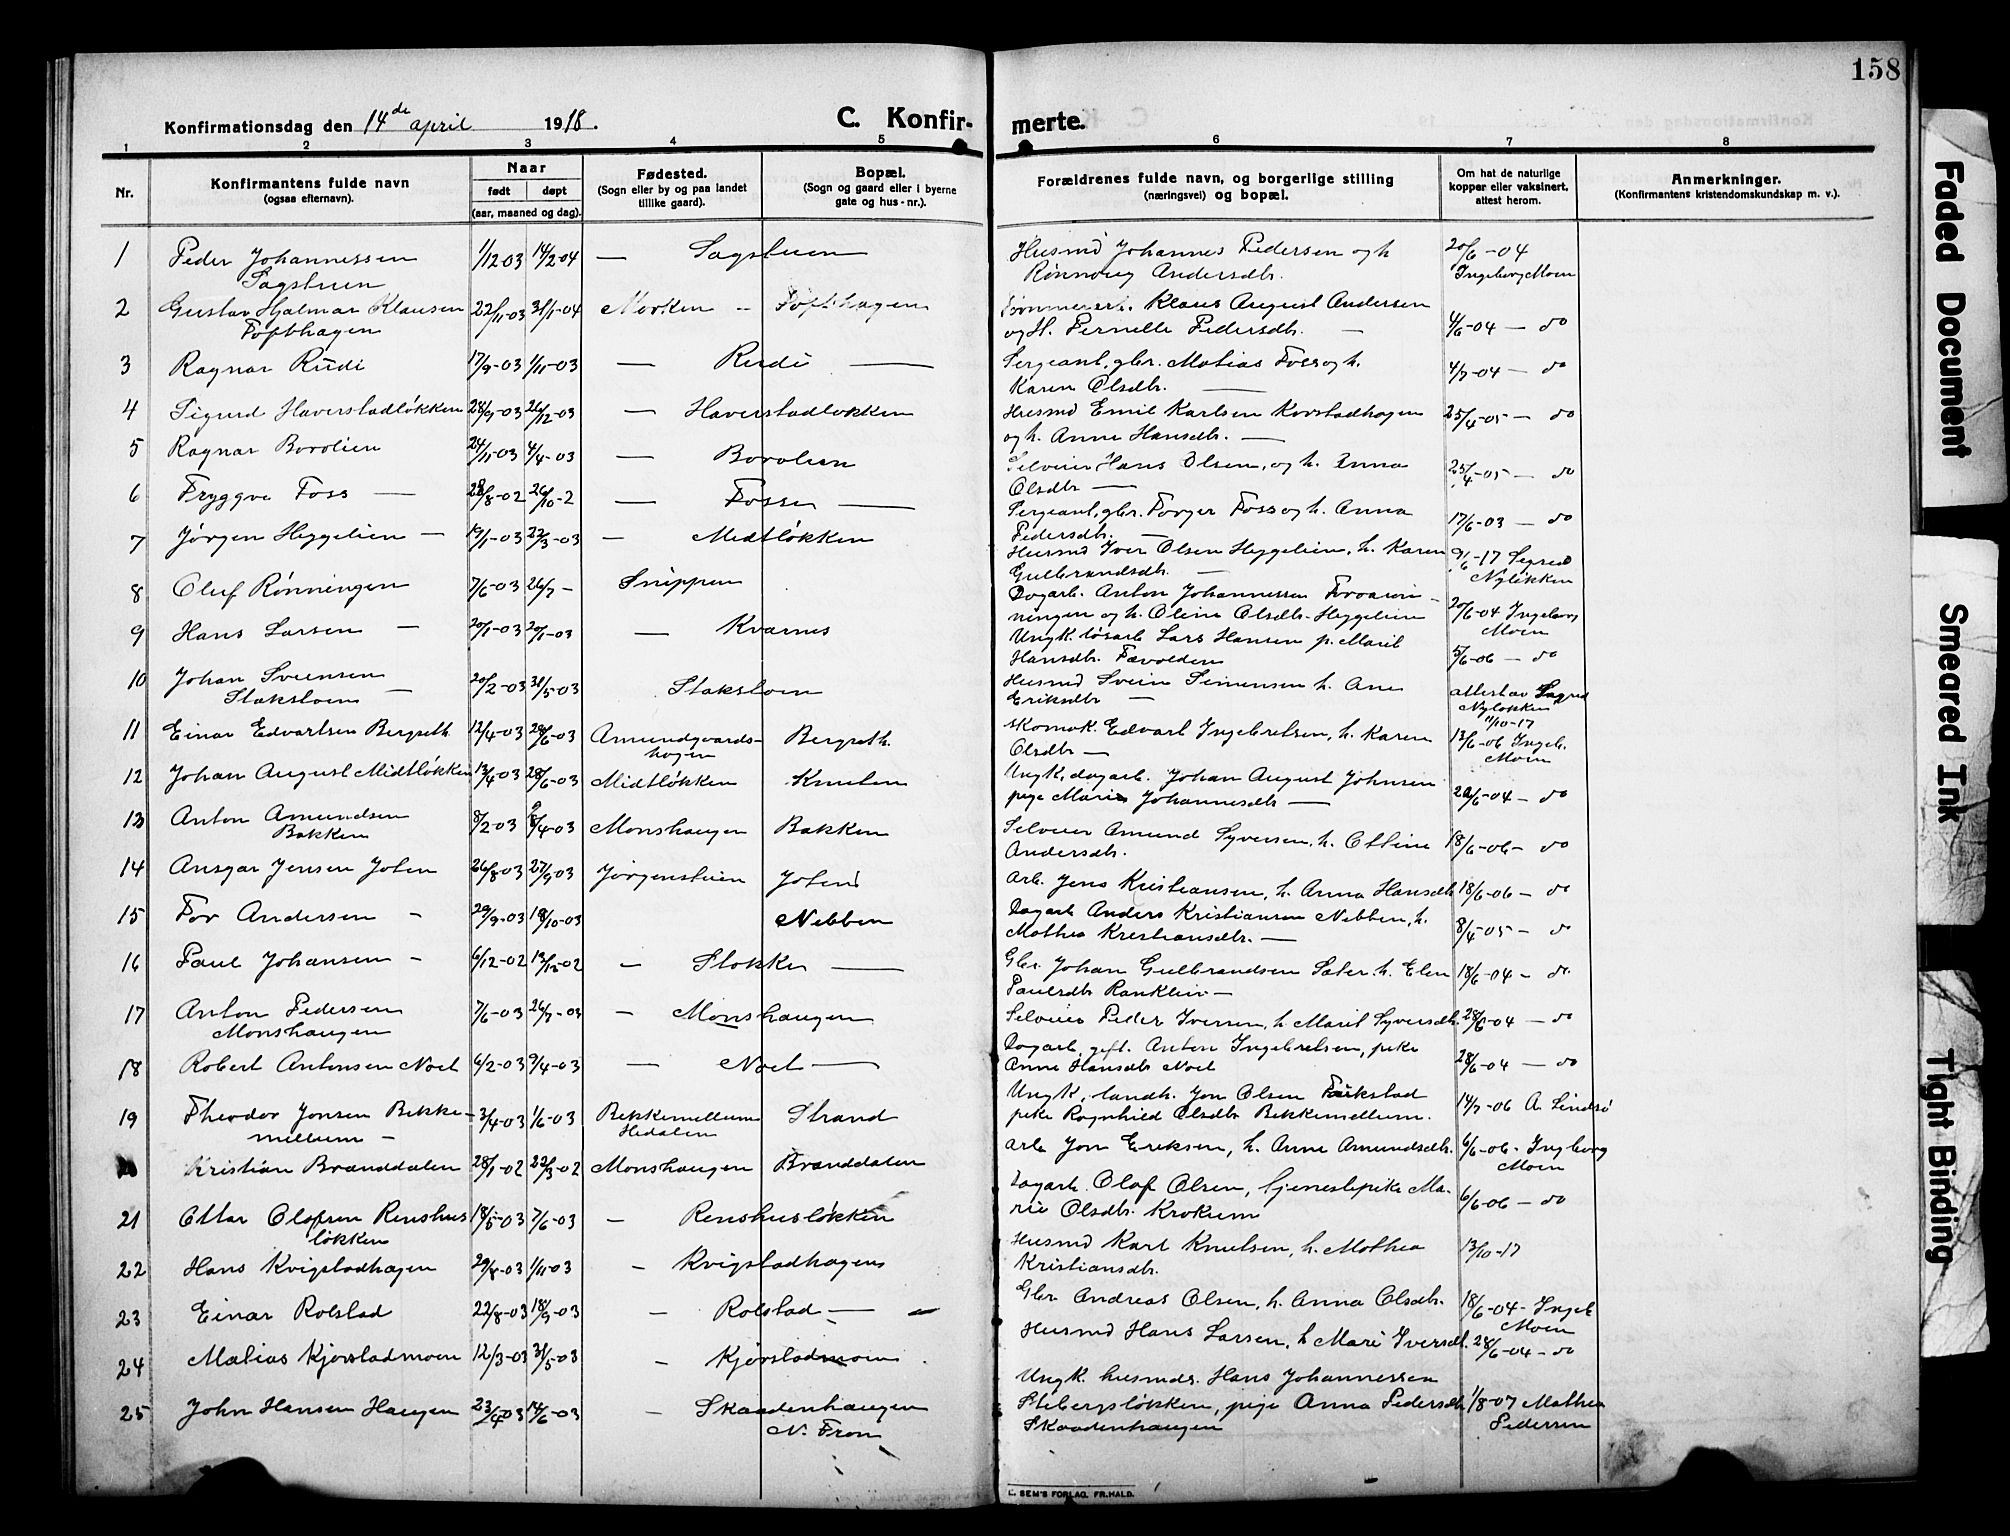 158
Konfirmationsdag den 14de april 1918.
C. Konfir-
merte.
1 2 3 4 5 6 7 8
Nr.
Konfirmantens fulde navn
(ogsaa efternavn).
Naar
født døpt
(aar, maaned og dag).
Fødested.
(Sogn eller by og paa landet
tillike gaard).
Bopæl.
(Sogn og gaard eller i byerne
gate og hus-nr.).
Forældrenes fulde navn, og borgerlige stilling
(næringsvei) og bopæl.
Om hat de naturlige
kopper eller vaksinert,
attest herom.
Anmerkninger.
(Konfirmantens kristendomskundskap m. v.).
1 Peder Johannessen 1/12 03 14/2 04 — Sagstuen Husmd Johannes Pedersen og h 20/6-04
Sagstuen Rønnoug Andersdtr. Ingeborg Moen
2 Gustav Hjalmar Klausen 22/11-03 31/1-04 Morken - Tofthagen Klaus August Andersen
Tofthagen og H. Pernelle Pedersdtr. — 4/6-04 — do
3 Ragnar Rudi 17/9-03 1/11-03 — Rudi — Sergeant, gbr. Matias Foss og h. 4/7-04 — do
Karen Olsdtr. —
4 Sigurd Haverstadløkken 28/9-03 26/12-03 — Haverstadløkken Husmd Emil Karlsen Korstadhagen 25/4-05 — do
og h. Anne Hansdtr. —
5 Ragnar Borolien 24/11-03 4/4-03 — Borolien Selveier Hans Olsen, og h. Anna 25/4-05 — do
Olsdtr —
6 Tryggve Foss — 28/8-02 26/10-2 — Fosse — Sergeant, gbr. Torger Foss og h. Anna 17/6-03 — do
Pedersdtr. —
7 Jørgen Heggelien — 19/1-03 22/3-03 — Midtløkken Husmd Iver Olsen Heggelien, h. Karen 9/6-17 Sigrid
Gulbrandsdtr. — Nyløkken
8 Oluf Rønningen 7/6-03 26/7 — Snippen Dagarb. Anton Johannessen
ningen og h. Oline Olsdtr. Heggelien 20/6-04 Ingeborg
Moen
9 Hans Larsen — 20/1-03 20/1-03 — Kvarnes Ungk. løsarb Lars Hansen p. Marit
Hansdtr. 5/6-06 — do
10 Johan Sveensen 20/2-03 31/5-03 Slaksloen Husmd Svein Simensen h. Ane attest av Sigrid
Slaksloen — Eriksdtr — Nyløkken
11/10-17
11 Einar Edvartsen Bergseth 12/4-03 28/6-03 Amundgaards- Bergseth. Skomak. Edvart Ingebretsen, h. Karen 13/6-06 Ingeb.
hagen Olsdtr — Moen
12 Johan August Midtløkken 13/4-03 28/6-03 Midtløkken Knuten Ungk. dagarb. Johan August Johnsen
pige Marie Johannesdtr — 20/6-04 — do
13 Anton Amundsen 8/2-03 9/4-03 Monshaugen Bakken Selveier Amund Syversen, h. Olline 18/6-06 — do
Bakken Andersdtr.
14 Ansgar Jensen Joten 26/8-03 27/9 03 Jørgenstuen Joten Arb. Jens Kristiansen, h. Anna Hansdtr 18/6-06 — do
15 Tor Andersen - 29/9-03 18/10-03 Nebben Dagarb Anders Kristiansen Nebben, h. 8/4-05 — do
Mathea Kristiansdtr. —
16 Paul Johansen - 6/12-02 13/12-02 — Slokke — Gbr. Johan Gulbrandsen Sater. h. Elen 18/6-04 — do.
Paulsdtr Ranklev —
17 Anton Pedersen 7/6-03 26/7-03 - Monshaugen Selveier Peder Iversen, h. Marit Syversdtr. 28/6-04 — do
Monshaugen
18 Robert Antonsen Noet 6/2-03 9/4-03 — Noet — Dagarb. gift. Anton Ingebretsen, pike
Anne Hansdtr Noet 28/6-04 — do
19 Theodor Jonsen Bekke- 3/4-03 1/6-03 Bekkemellum Strand Ungk. landh. Jon Olsen
mellum — Hedalen pike Ragnhild Olsdtr Bekkemellum. 14/7-06 A. Lindsø
Kristian Branddalen 28/1-02 22/3-02 Monshaugen Branddalen arb Jon Eriksen, h. Anne Amundsdtr. 6/6-06 - Ingeborg
Moen
21 Ottar Olafsen Renshus 18/5-03 7/6-03 - Renshusløkken Dagarb. Olaf Olsen, tjenestepike Ma-
løkken rie Olsdtr. Krokum 6/6-06 — do
22 Hans Kvigstadhagen 29/8-03 1/11-03 - Kvigstadhagen Husmd Karl Knutsen, h. Mathea 13/10-17
Kristiansdtr.
23 Einar Rolstad 22/8-03 18/9-03 - Rolstad — Gbr Andreas Olsen, h. Anna Olsdtr. 18/6-04 - Ingeb
Moen
24 Matias Kjørstadmoen 12/3-03 31/5-03 - Kjørstadmoen Husmd Hans Larsen, h Mari Iversdtr. 28/6-04 — do
Ungk. husmds. Hans Johannessen
25 John Hansen Haugen 23/4-03 14/6-03 - Skaadenhaugen Stebergsløkken, pige Anna Pedersdtr 1/8-07 Mathea
N. Fron Skaadenhaugen Pedersen
E. SEM'S FORLAG. FR.HALD.
Faded Document
Smeared Ink
Tight Binding